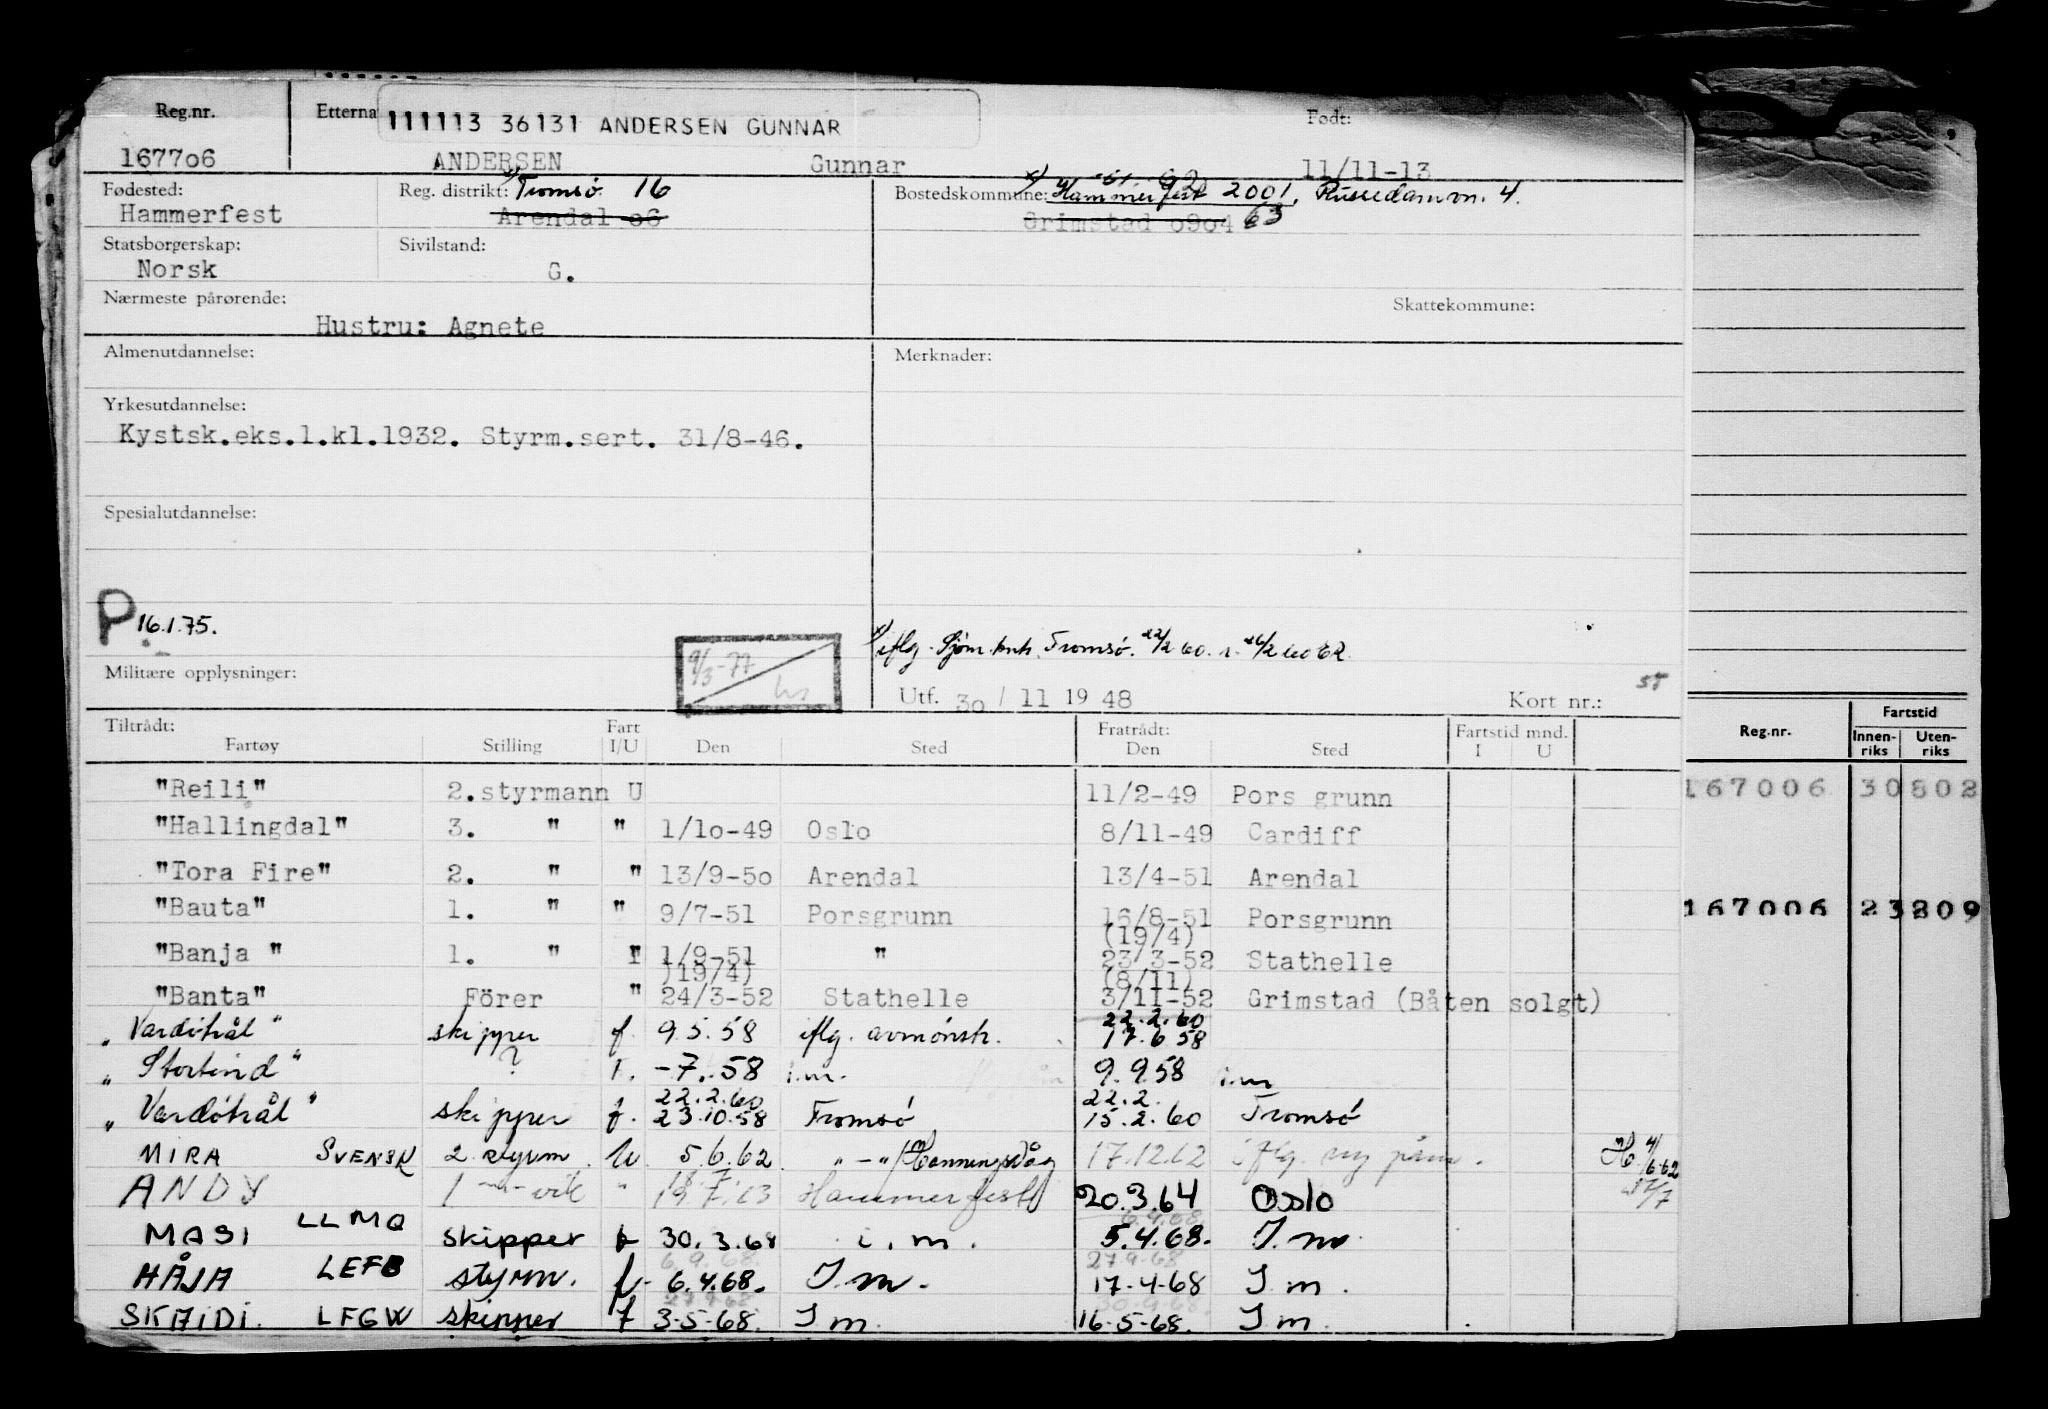 Reg.nr. Etterna 111113 36131 ANDERSEN GUNNAR Født:
167706 ANDERSEN Gunnar 11/11-13
Fødested: Reg. distrikt: Tromsø 16 Bostedskommune: Hammerfest 2001, 4.
Hammerfest Arendal 06 Grimstad 0904 63
Statsborgerskap: Sivilstand:
Norsk G.
Nærmeste pårørende: Skattekommune:
Hustru: Agnete
Almenutdannelse: Merknader:
Yrkesutdannelse:
Kystsk.eks.1.kl.1932. Styrm.sert. 31/8-46.
Spesialutdannelse:
P 16.1.75.
9/3-77
iflg. Sjøm.knt. Tromsø. 22/2 60.
Militære opplysninger: Utf. 30 / 11 19 48 Kort nr.:
Tiltrådt: Fart Fratrådt: Fartstid mnd.
Fartøy Stilling I/U Den Sted Den Sted I U
Reg.nr. Fartstid
Innen-riks Uten-riks
"Reili" 2.styrmann U 11/2-49 Pors grunn
167006 30802
"Hallingdal" 3. " " 1/10-49 Oslo 8/11-49 Cardiff
"Tora Fire" 2. " " 13/9-50 Arendal 13/4-51 Arendal
"Bauta" 1. " " 9/7-51 Porsgrunn 16/8-51 Porsgrunn
167006 23209
(19/4)
"Banja " 1. " I 1/9-51 " 23/3-52 Stathelle
(19/4) (8/11)
"Banta" Förer " 24/3-52 Stathelle 3/11-52 Grimstad (Båten solgt)
22.2.60
"Vardötrål" skipper f. 9.5.58 iflg. avmönstr. 17.6.58
"Stortind" ? I. -7.-58 i.m. 9.9.58 i.m
22.2.60 22.2.
"Vardötrål" skipper f. 23.10.58 Tromsø 15.2.60 Tromsø
MIRA SVENSK 2 styrm. U 5.6.62 " - " Honningsvåg 17.12.62 iflg. ny påm.
ANDY 1 -"- vik " 19.7.63 Hammerfest 20.3.64 Oslo
MASI LLMQ skipper f 30.3.68 i.m. 5.4.68. I.m.
HÅJA LEFB styrm. f. 6.4.68. I.m. 17-4-68 I m.
SKAIDI. LFGW skipper f 3-5-68. I m. 16-5-68. I m.